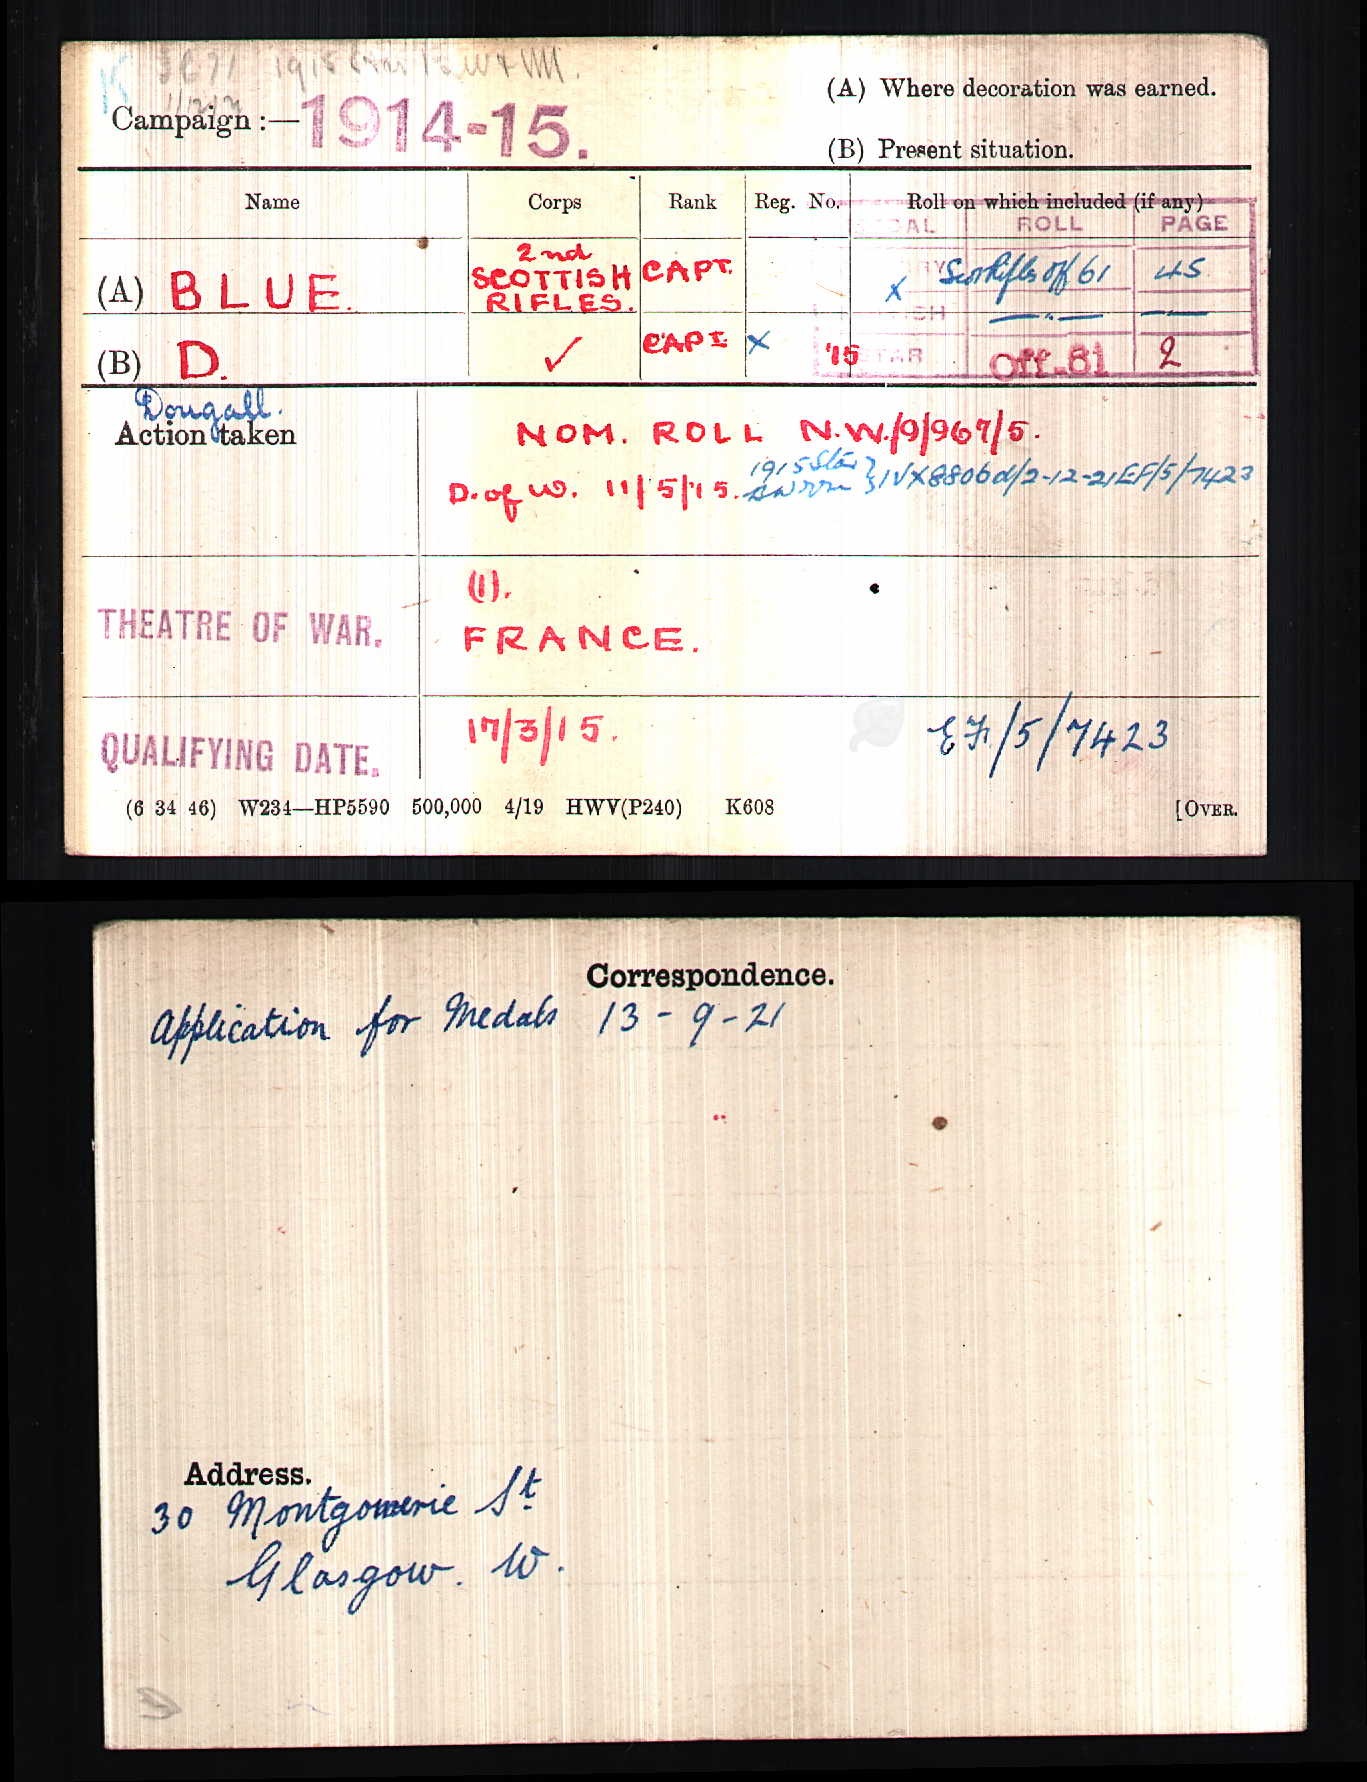 1915
Campaign :— 1914-15.
(A) Where decoration was earned.
(B) Present situation.
Name Corps Rank Reg. No. Roll on which included (if any)
ROLL PAGE
(A) BLUE. 2nd SCOTTISH RIFLES. CAPT. X Scottish Rifles Off 61 45
(B) D. ✓ CAPT X '15 STAR Off-81 2
Dougall.
Action taken
NOM. ROLL N.W./9/967/5.
D. of W. 11/5/15. 1915 Star IVX8806d/2-12-21 EF/5/7423
THEATRE OF WAR.
(1).
FRANCE.
QUALIFYING DATE.
17/3/15.
EF/5/7423
(6 34 46) W234—HP5590 500,000 4/19 HWV(P240) K608
[OVER.
Correspondence.
Application for Medals 13-9-21
Address.
30 Montgomerie St
Glasgow. W.